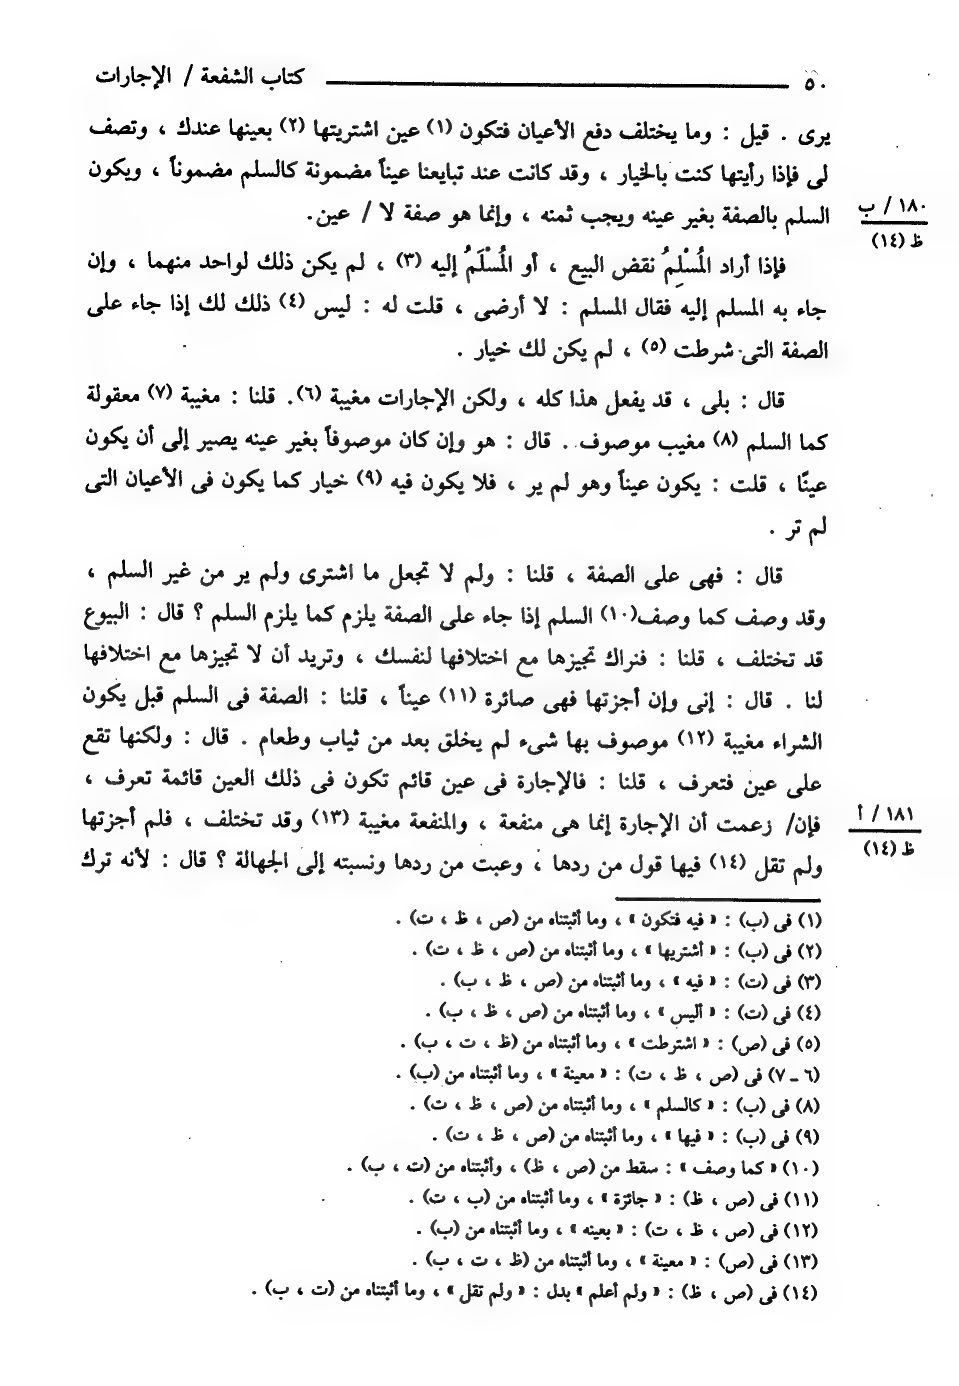 ٥٠ كتاب الشفعة / الإجارات
يرى . قيل : وما يختلف دفع الأعيان فتكون (١) عين اشتريتها (٢) بعينها عندك ، وتصف
لى فإذا رأيتها كنت بالخيار ، وقد كانت عند تبايعنا عيناً مضمونة كالسلم مضموناً ، ويكون
السلم بالصفة بغير عينه ويجب ثمنه ، وإنما هو صفة لا / عين.
١٨٠ / ب
ظ (١٤)
فإذا أراد المُسْلِمُ نقض البيع ، أو المُسْلَمُ إليه (٣) ، لم يكن ذلك لواحد منهما ، وإن
جاء به المسلم إليه فقال المسلم : لا أرضى ، قلت له : ليس (٤) ذلك لك إذا جاء على
الصفة التى شرطت (٥) ، لم يكن لك خيار .
قال : بلى ، قد يفعل هذا كله ، ولكن الإجارات مغيبة (٦). قلنا : مغيبة (٧) معقولة
كما السلم (٨) مغيب موصوف . قال : هو وإن كان موصوفاً بغير عينه يصير إلى أن يكون
عينًا ، قلت : يكون عيناً وهو لم ير ، فلا يكون فيه (٩) خيار كما يكون فى الأعيان التى
لم تر .
قال : فهى على الصفة ، قلنا : ولم لا تجعل ما اشترى ولم ير من غير السلم ،
وقد وصف كما وصف(١٠) السلم إذا جاء على الصفة يلزم كما يلزم السلم ؟ قال : البيوع
قد تختلف ، قلنا : فنراك تجيزها مع اختلافها لنفسك ، وتريد أن لا تجيزها مع اختلافها
لنا . قال : إنى وإن أجزتها فهى صائرة (١١) عيناً ، قلنا : الصفة فى السلم قبل يكون
الشراء مغيبة (١٢) موصوف بها شىء لم يخلق بعد من ثياب وطعام . قال : ولكنها تقع
على عين فتعرف ، قلنا : فالإجارة فى عين قائم تكون فى ذلك العين قائمة تعرف ،
فإن/ زعمت أن الإجارة إنما هى منفعة ، والمنفعة مغيبة (١٣) وقد تختلف ، فلم أجزتها
١٨١ / أ
ظ (١٤)
ولم تقل (١٤) فيها قول من ردها ، وعبت من ردها ونسبته إلى الجهالة ؟ قال : لأنه ترك
(١) فى (ب) : « فيه فتكون » ، وما أثبتناه من (ص ، ظ ، ت) .
(٢) فى (ب) : « أشتريها » ، وما أثبتناه من (ص ، ظ ، ت) .
(٣) فى (ت) : « فيه » ، وما أثبتناه من (ص ، ظ ، ب) .
(٤) فى (ت) : « أليس » ، وما أثبتناه من (ص ، ظ ، ب) .
(٥) فى (ص) : « اشترطت » ، وما أثبتناه من (ظ ، ت ، ب) .
(٦ ــ ٧) فى (ص ، ظ ، ت) : « معينة » ، وما أثبتناه من (ب) .
(٨) فى (ب) : « كالسلم » ، وما أثبتناه من (ص ، ظ ، ت) .
(٩) فى (ب) : « فيها » ، وما أثبتناه من (ص ، ظ ، ت) .
(١٠) « كما وصف » : سقط من (ص ، ظ) ، وأثبتناه من (ت ، ب) .
(١١) فى (ص ، ظ) : « جائزة » ، وما أثبتناه من (ب ، ت) .
(١٢) فى (ص ، ظ ، ت) : « بعينه » ، وما أثبتناه من (ب) .
(١٣) فى (ص) : « معينة » ، وما أثبتناه من (ظ ، ت ، ب) .
(١٤) فى (ص ، ظ) : « ولم أعلم » بدل : « ولم تقل » ، وما أثبتناه من (ت ، ب) .